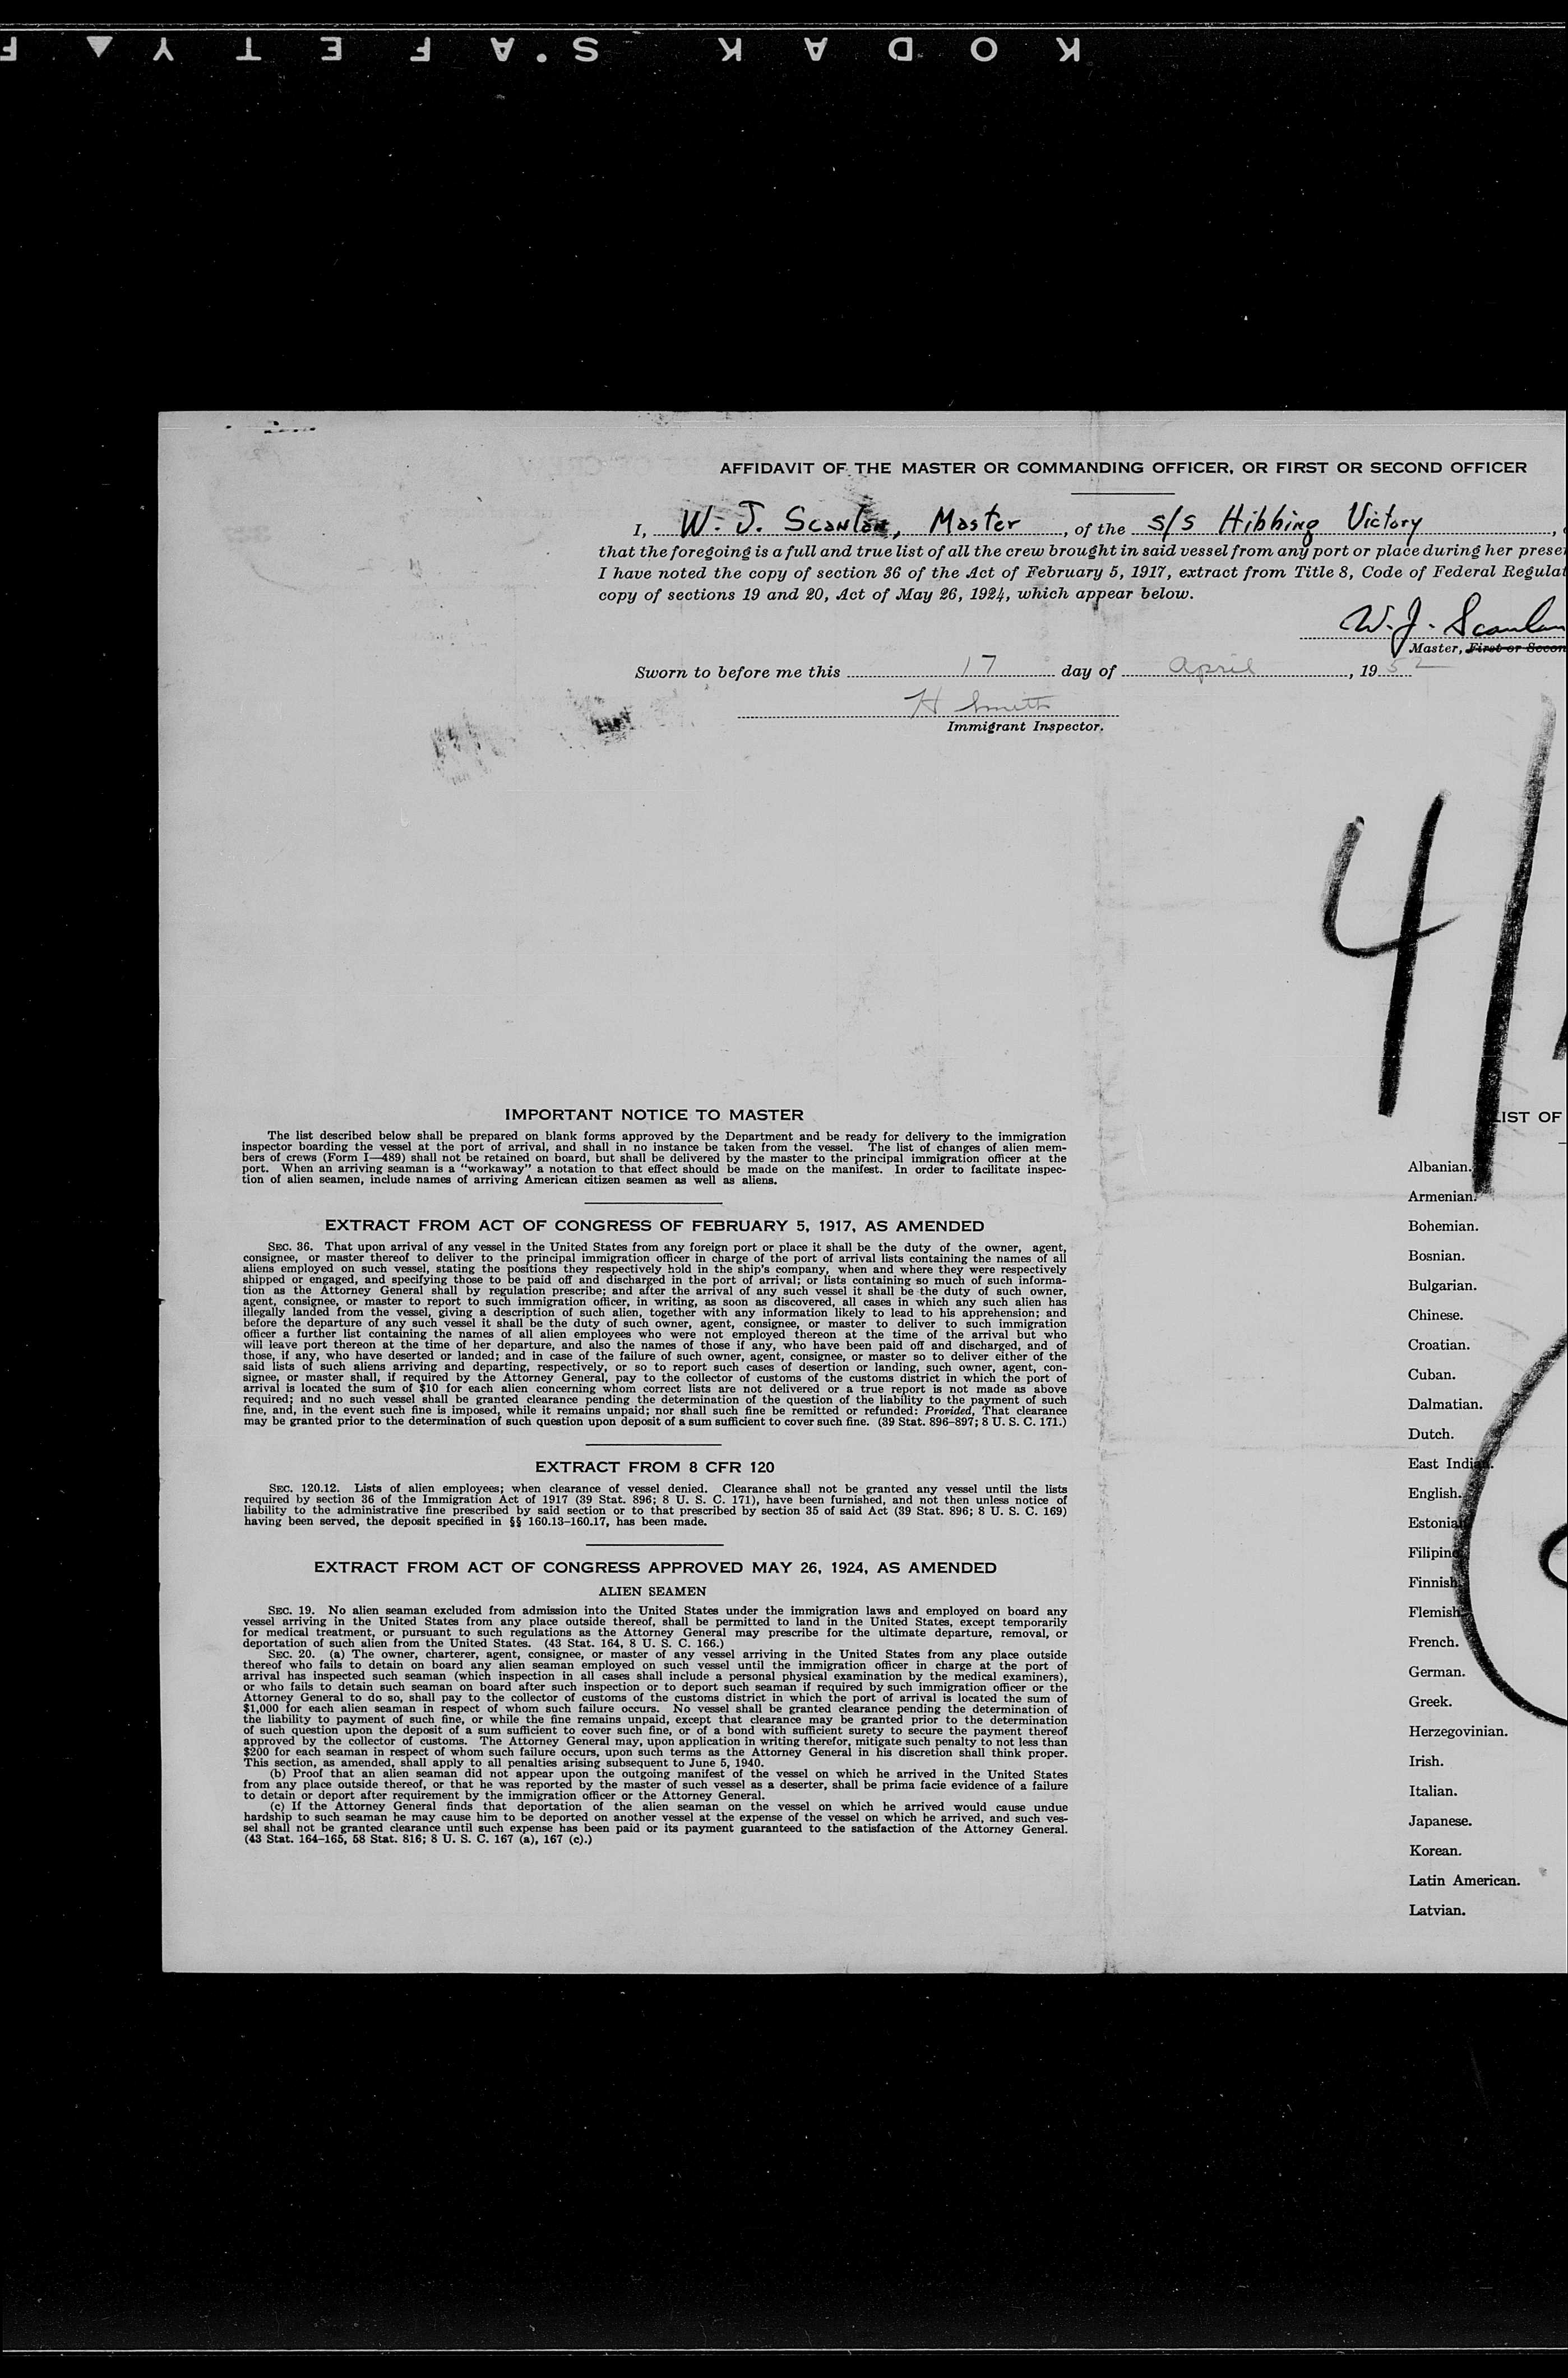 KODAK SAFETY F
AFFIDAVIT OF THE MASTER OR COMMANDING OFFICER, OR FIRST OR SECOND OFFICER
I, W. J. Scanlan, Master, of the s/s Hibbing Victory,
that the foregoing is a full and true list of all the crew brought in said vessel from any port or place during her prese
I have noted the copy of section 36 of the Act of February 5, 1917, extract from Title 8, Code of Federal Regulat
copy of sections 19 and 20, Act of May 26, 1924, which appear below.
W. J. Scanlan
Master, First or Secon
Sworn to before me this 17 day of April, 1952
H Smith
Immigrant Inspector.
41
IMPORTANT NOTICE TO MASTER
The list described below shall be prepared on blank forms approved by the Department and be ready for delivery to the immigration
inspector boarding the vessel at the port of arrival, and shall in no instance be taken from the vessel. The list of changes of alien mem-
bers of crews (Form I—489) shall not be retained on board, but shall be delivered by the master to the principal immigration officer at the
port. When an arriving seaman is a "workaway" a notation to that effect should be made on the manifest. In order to facilitate inspec-
tion of alien seamen, include names of arriving American citizen seamen as well as aliens.
EXTRACT FROM ACT OF CONGRESS OF FEBRUARY 5, 1917, AS AMENDED
SEC. 36. That upon arrival of any vessel in the United States from any foreign port or place it shall be the duty of the owner, agent,
consignee, or master thereof to deliver to the principal immigration officer in charge of the port of arrival lists containing the names of all
aliens employed on such vessel, stating the positions they respectively hold in the ship's company, when and where they were respectively
shipped or engaged, and specifying those to be paid off and discharged in the port of arrival; or lists containing so much of such informa-
tion as the Attorney General shall by regulation prescribe; and after the arrival of any such vessel it shall be the duty of such owner,
agent, consignee, or master to report to such immigration officer, in writing, as soon as discovered, all cases in which any such alien has
illegally landed from the vessel, giving a description of such alien, together with any information likely to lead to his apprehension; and
before the departure of any such vessel it shall be the duty of such owner, agent, consignee, or master to deliver to such immigration
officer a further list containing the names of all alien employees who were not employed thereon at the time of the arrival but who
will leave port thereon at the time of her departure, and also the names of those if any, who have been paid off and discharged, and of
those, if any, who have deserted or landed; and in case of the failure of such owner, agent, consignee, or master so to deliver either of the
said lists of such aliens arriving and departing, respectively, or so to report such cases of desertion or landing, such owner, agent, con-
signee, or master shall, if required by the Attorney General, pay to the collector of customs of the customs district in which the port of
arrival is located the sum of $10 for each alien concerning whom correct lists are not delivered or a true report is not made as above
required; and no such vessel shall be granted clearance pending the determination of the question of the liability to the payment of such
fine, and, in the event such fine is imposed, while it remains unpaid; nor shall such fine be remitted or refunded: Provided, That clearance
may be granted prior to the determination of such question upon deposit of a sum sufficient to cover such fine. (39 Stat. 896–897; 8 U. S. C. 171.)
EXTRACT FROM 8 CFR 120
SEC. 120.12. Lists of alien employees; when clearance of vessel denied. Clearance shall not be granted any vessel until the lists
required by section 36 of the Immigration Act of 1917 (39 Stat. 896; 8 U. S. C. 171), have been furnished, and not then unless notice of
liability to the administrative fine prescribed by said section or to that prescribed by section 35 of said Act (39 Stat. 896; 8 U. S. C. 169)
having been served, the deposit specified in §§ 160.13–160.17, has been made.
EXTRACT FROM ACT OF CONGRESS APPROVED MAY 26, 1924, AS AMENDED
ALIEN SEAMEN
SEC. 19. No alien seaman excluded from admission into the United States under the immigration laws and employed on board any
vessel arriving in the United States from any place outside thereof, shall be permitted to land in the United States, except temporarily
for medical treatment, or pursuant to such regulations as the Attorney General may prescribe for the ultimate departure, removal, or
deportation of such alien from the United States. (43 Stat. 164, 8 U. S. C. 166.)
SEC. 20. (a) The owner, charterer, agent, consignee, or master of any vessel arriving in the United States from any place outside
thereof who fails to detain on board any alien seaman employed on such vessel until the immigration officer in charge at the port of
arrival has inspected such seaman (which inspection in all cases shall include a personal physical examination by the medical examiners),
or who fails to detain such seaman on board after such inspection or to deport such seaman if required by such immigration officer or the
Attorney General to do so, shall pay to the collector of customs of the customs district in which the port of arrival is located the sum of
$1,000 for each alien seaman in respect of whom such failure occurs. No vessel shall be granted clearance pending the determination of
the liability to payment of such fine, or while the fine remains unpaid, except that clearance may be granted prior to the determination
of such question upon the deposit of a sum sufficient to cover such fine, or of a bond with sufficient surety to secure the payment thereof
approved by the collector of customs. The Attorney General may, upon application in writing therefor, mitigate such penalty to not less than
$200 for each seaman in respect of whom such failure occurs, upon such terms as the Attorney General in his discretion shall think proper.
This section, as amended, shall apply to all penalties arising subsequent to June 5, 1940.
(b) Proof that an alien seaman did not appear upon the outgoing manifest of the vessel on which he arrived in the United States
from any place outside thereof, or that he was reported by the master of such vessel as a deserter, shall be prima facie evidence of a failure
to detain or deport after requirement by the immigration officer or the Attorney General.
(c) If the Attorney General finds that deportation of the alien seaman on the vessel on which he arrived would cause undue
hardship to such seaman he may cause him to be deported on another vessel at the expense of the vessel on which he arrived, and such ves-
sel shall not be granted clearance until such expense has been paid or its payment guaranteed to the satisfaction of the Attorney General.
(43 Stat. 164–165, 58 Stat. 816; 8 U. S. C. 167 (a), 167 (c).)
LIST OF
Albanian.
Armenian.
Bohemian.
Bosnian.
Bulgarian.
Chinese.
Croatian.
Cuban.
Dalmatian.
Dutch.
East Indian.
English.
Estonian
Filipino
Finnish
Flemish
French.
German.
Greek.
Herzegovinian.
Irish.
Italian.
Japanese.
Korean.
Latin American.
Latvian.